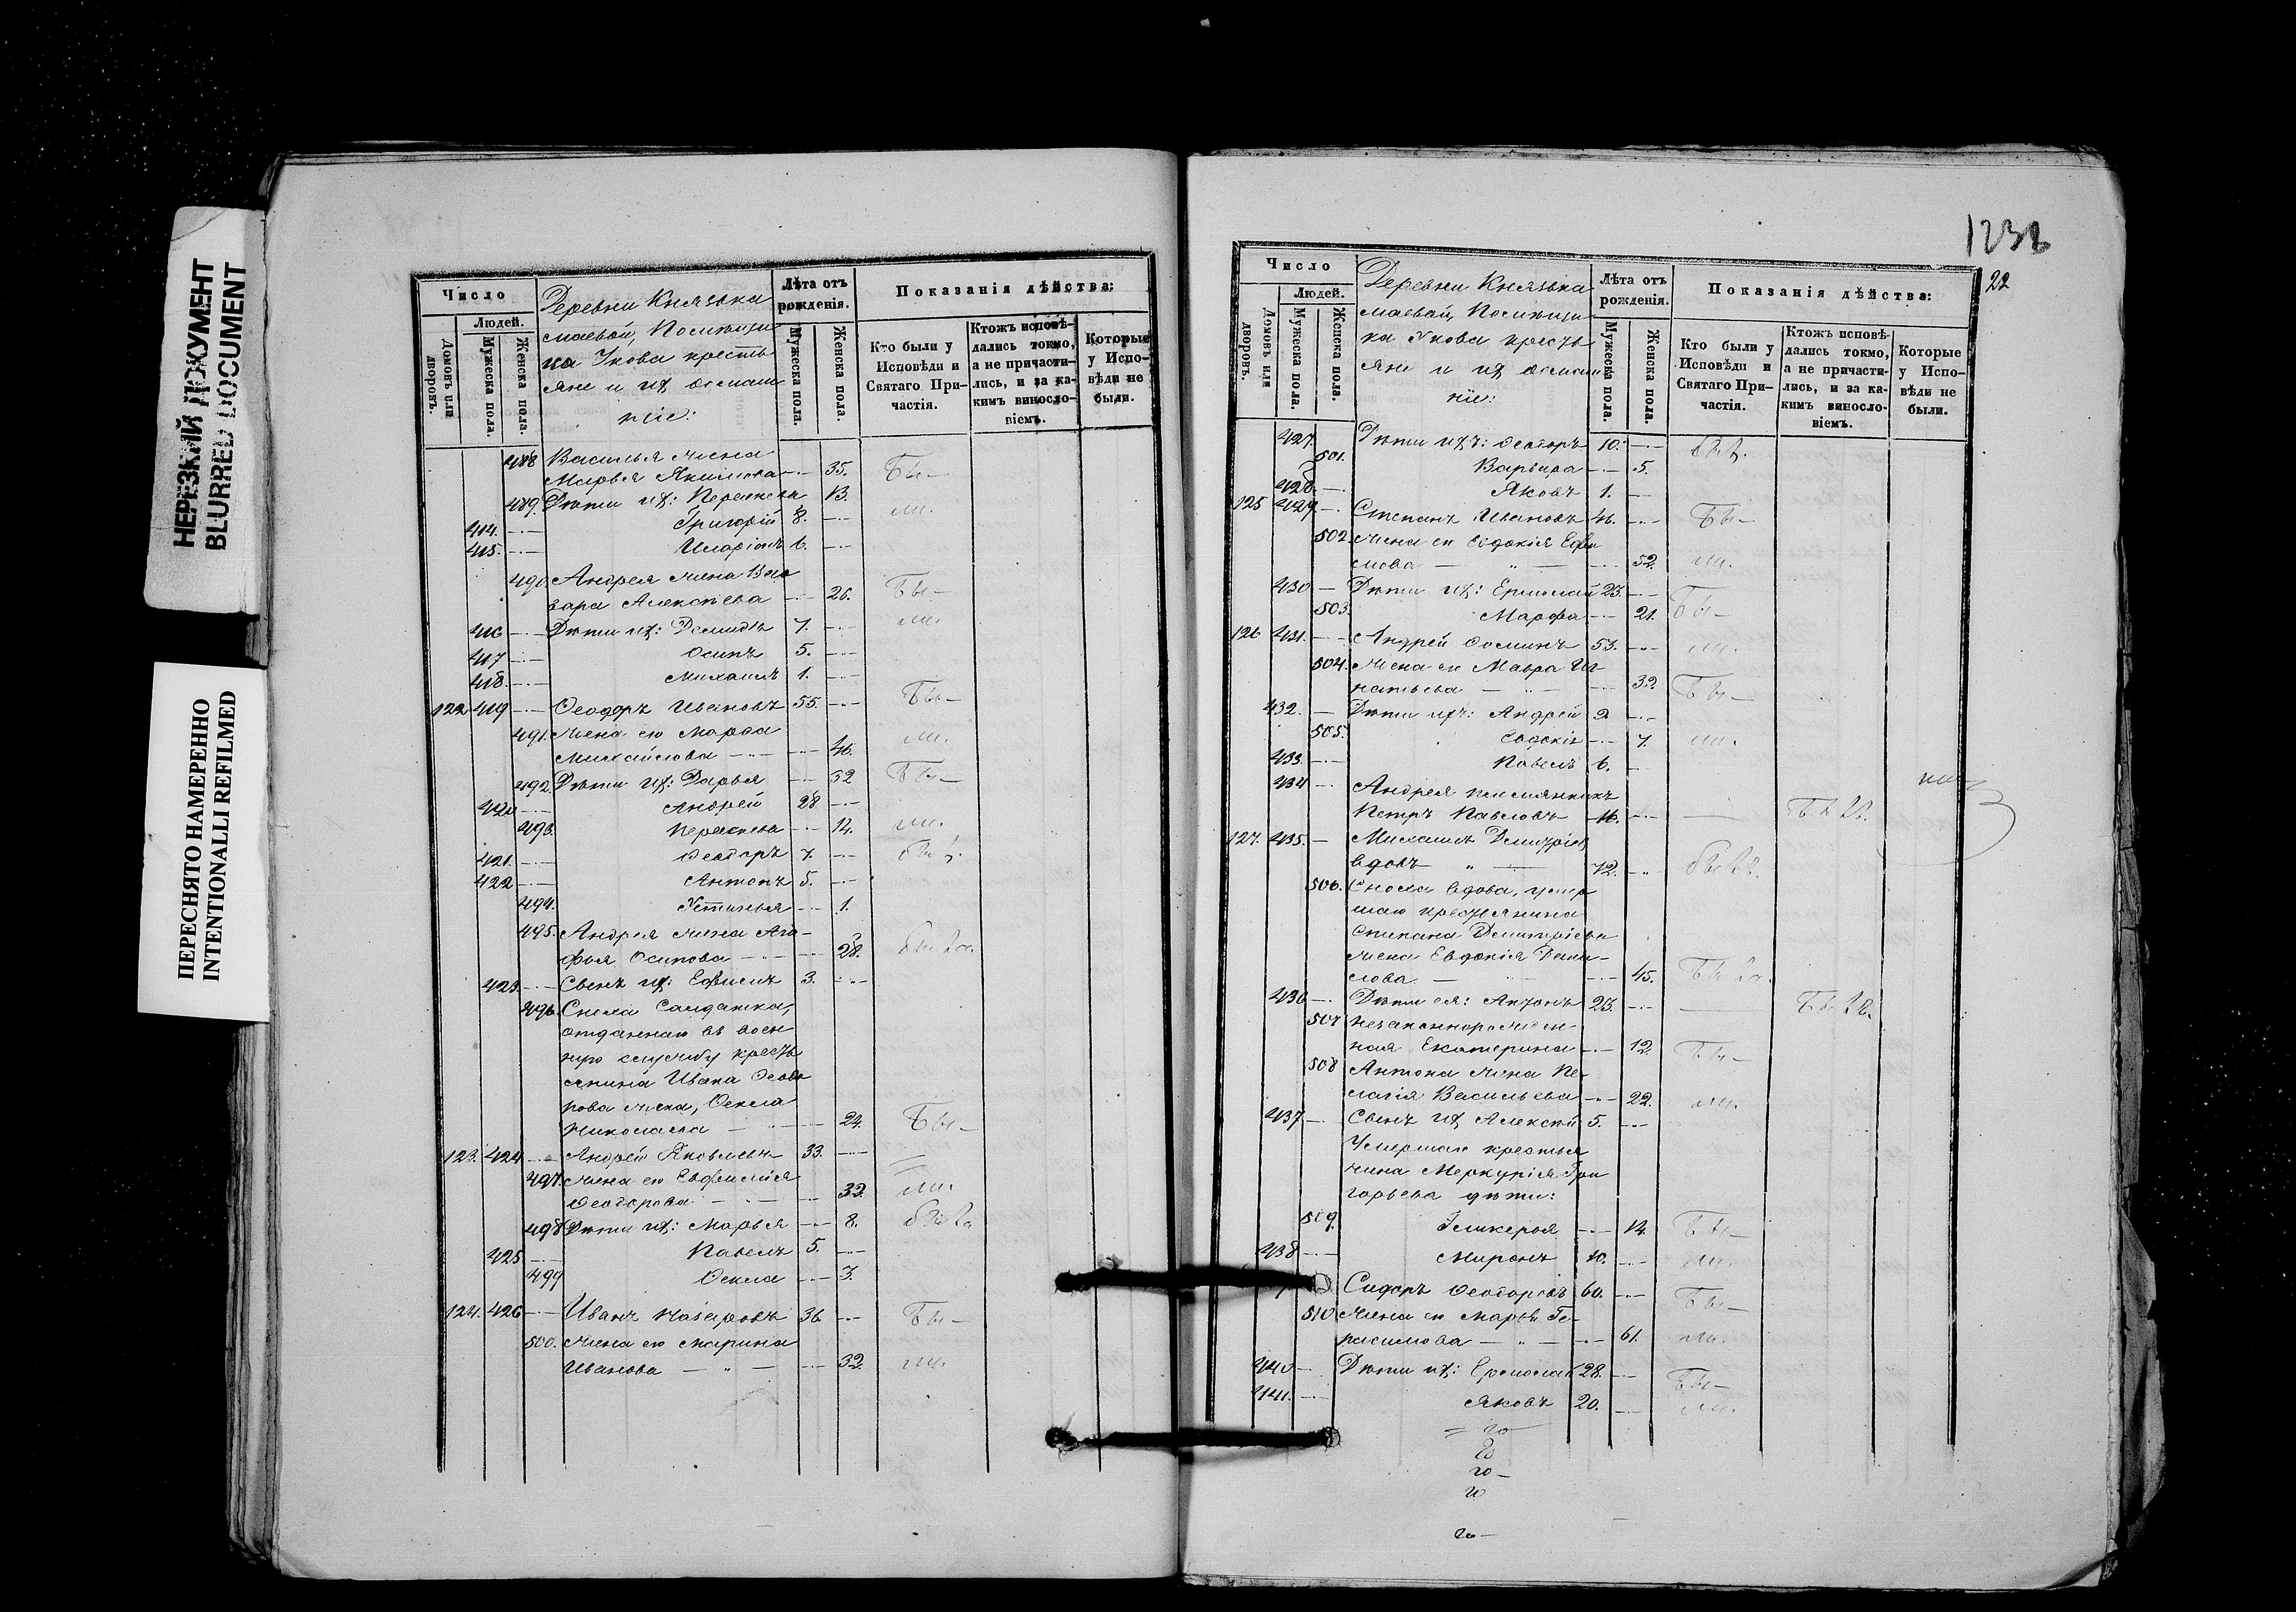 НЕРЕЗКИЙ ДОКУМЕНТ
BLURRED DOCUMENT
ПЕРЕСНЯТО НАМЕРЕННО
INTENTIONALLI REFILMED
Число
Людей.
Домовъ или дворовъ.
Мужеска пола.
Женска пола.
Деревни Князька
маевой, Помѣщи
ка Укова кресть
яне и их домаш
ніе:
Лѣта отъ
рожденія.
Мужеска пола.
Женска пола.
Показанія дѣйства:
Кто были у
Исповѣди и
Святаго При-
частія.
Ктожъ исповѣ-
дались токмо,
а не причасти-
лись, и за ка-
кимъ винослo-
віемъ.
Которые
у Испо-
вѣди не
были.
488 Василья жена
Марья Акимова 35. Бы-
489. Дѣти их: 13. ли.
414. Григорій 8.
415. Иларіонъ 6.
490 Андрея жена Вар
вара Алексѣева 26. Бы-
416 Дѣти их: Демидъ 7. ли.
417 Осипъ 5.
418. Михаилъ 1.
122 419 Ѳеодоръ Ивановъ 55. Бы-
491. Жена его Марѳа
Михайлова 46. ли.
492. Дѣти их: Дарья 32 Бы-
420 Андрей 28
493. 14. ли.
421. Ѳеодоръ 7.
422 Антонъ 5.
494. Устинья 1.
495. Андрея жена Ага-
фья Осипова 28.
423. Сынъ их: Ефимъ 3.
496. Сноха Салдатка,
отданнаго въ воен
ную службу кресть
янина Ивана Ѳеодо
рова жена, Ѳекла
Николаева 24. Бы-
123. 424 Андрей Яковлевъ 33.
497. Жена его Евфимія
Ѳеодорова 32. ли.
498 Дѣти их: Марья 8.
425 Павелъ 5.
499 Ѳекла 3.
124. 426 Иванъ Назаровъ 36. Бы-
500. Жена его Марина
Иванова 32. ли.
1232
22
Число
Людей.
Домовъ или дворовъ.
Мужеска пола.
Женска пола.
Деревни Князька
маевой, Помѣщи
ка Укова кресть
яне и их домаш
ніе:
Лѣта отъ
рожденія.
Мужеска пола.
Женска пола.
Показанія дѣйства:
Кто были у
Исповѣди и
Святаго При-
частія.
Ктожъ исповѣ-
дались токмо,
а не причасти-
лись, и за ка-
кимъ винослo-
віемъ.
Которые
у Испо-
вѣди не
были.
427. Дѣти ихъ: Ѳеодоръ 10.
501. Варвара 5.
428. Яковъ 1.
125 429. Степанъ Ивановъ 46. Бы-
502. Жена его Евдокія Ефи
мова 52. ли.
430 Дѣти их: Ермолай 23.
503. Марфа 21. Бы-
126 431. Андрей Ѳоминъ 53. ли.
504. Жена его Мавра Иг
натьева 32. Бы-
432. Дѣти ихъ: Андрей 9
505. Евдокія 7. ли.
433. Павелъ 6.
434 Андрея племянникъ
Петръ Павловъ 16.
127. 435. Михаилъ Дмитріевъ
вдовъ 72.
506. Сноха вдова, умер
шаго крестьянина
Степана Дмитріева
жена Евдокія Дани-
лова 45.
436 Дѣти ея: Антонъ 23.
507 Незаконнорожден-
ная Екатерина 12. Бы-
508 Антона жена Пе-
лагія Васильева 22. ли.
437 Сынъ их Алексѣй 5.
Умершаго крестья
нина Меркурія Гри
горьева дѣти:
509. Гликерья 14. Бы-
438 Миронъ 10. ли.
Сидоръ Ѳеодоровъ 60. Бы-
510 Жена его Марѳа Ге-
расимова 61. ли.
440 Дѣти их: Ермолай 28. Бы-
441. Яковъ 20. ли.